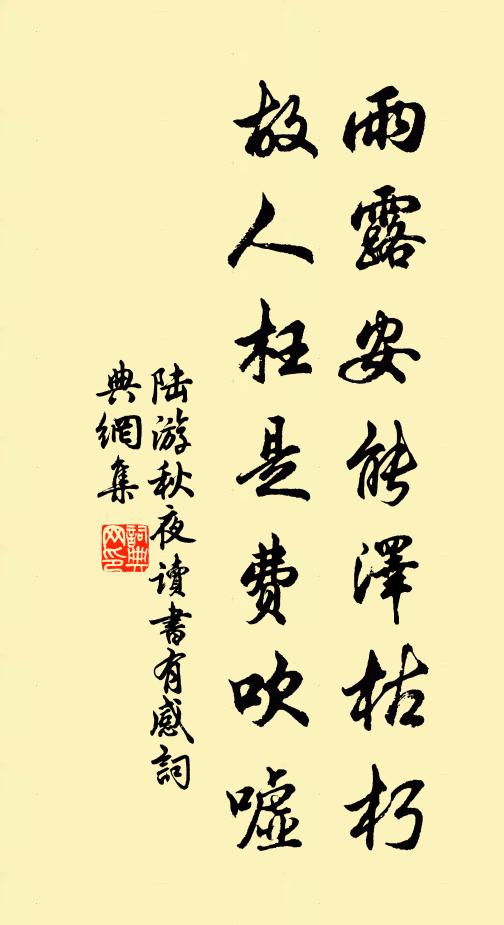 雨露安能澤枯朽
故人枉是費吹噓
陆游秋夜讀書有感詞
典網集
詞典
网印